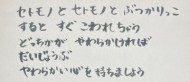 セトモノと セトモノと ぶつかりっこ
すると すぐ こわれちゃう
どっちかが やわらかければ
だいじょうぶ
やわらかい心を持ちましょう